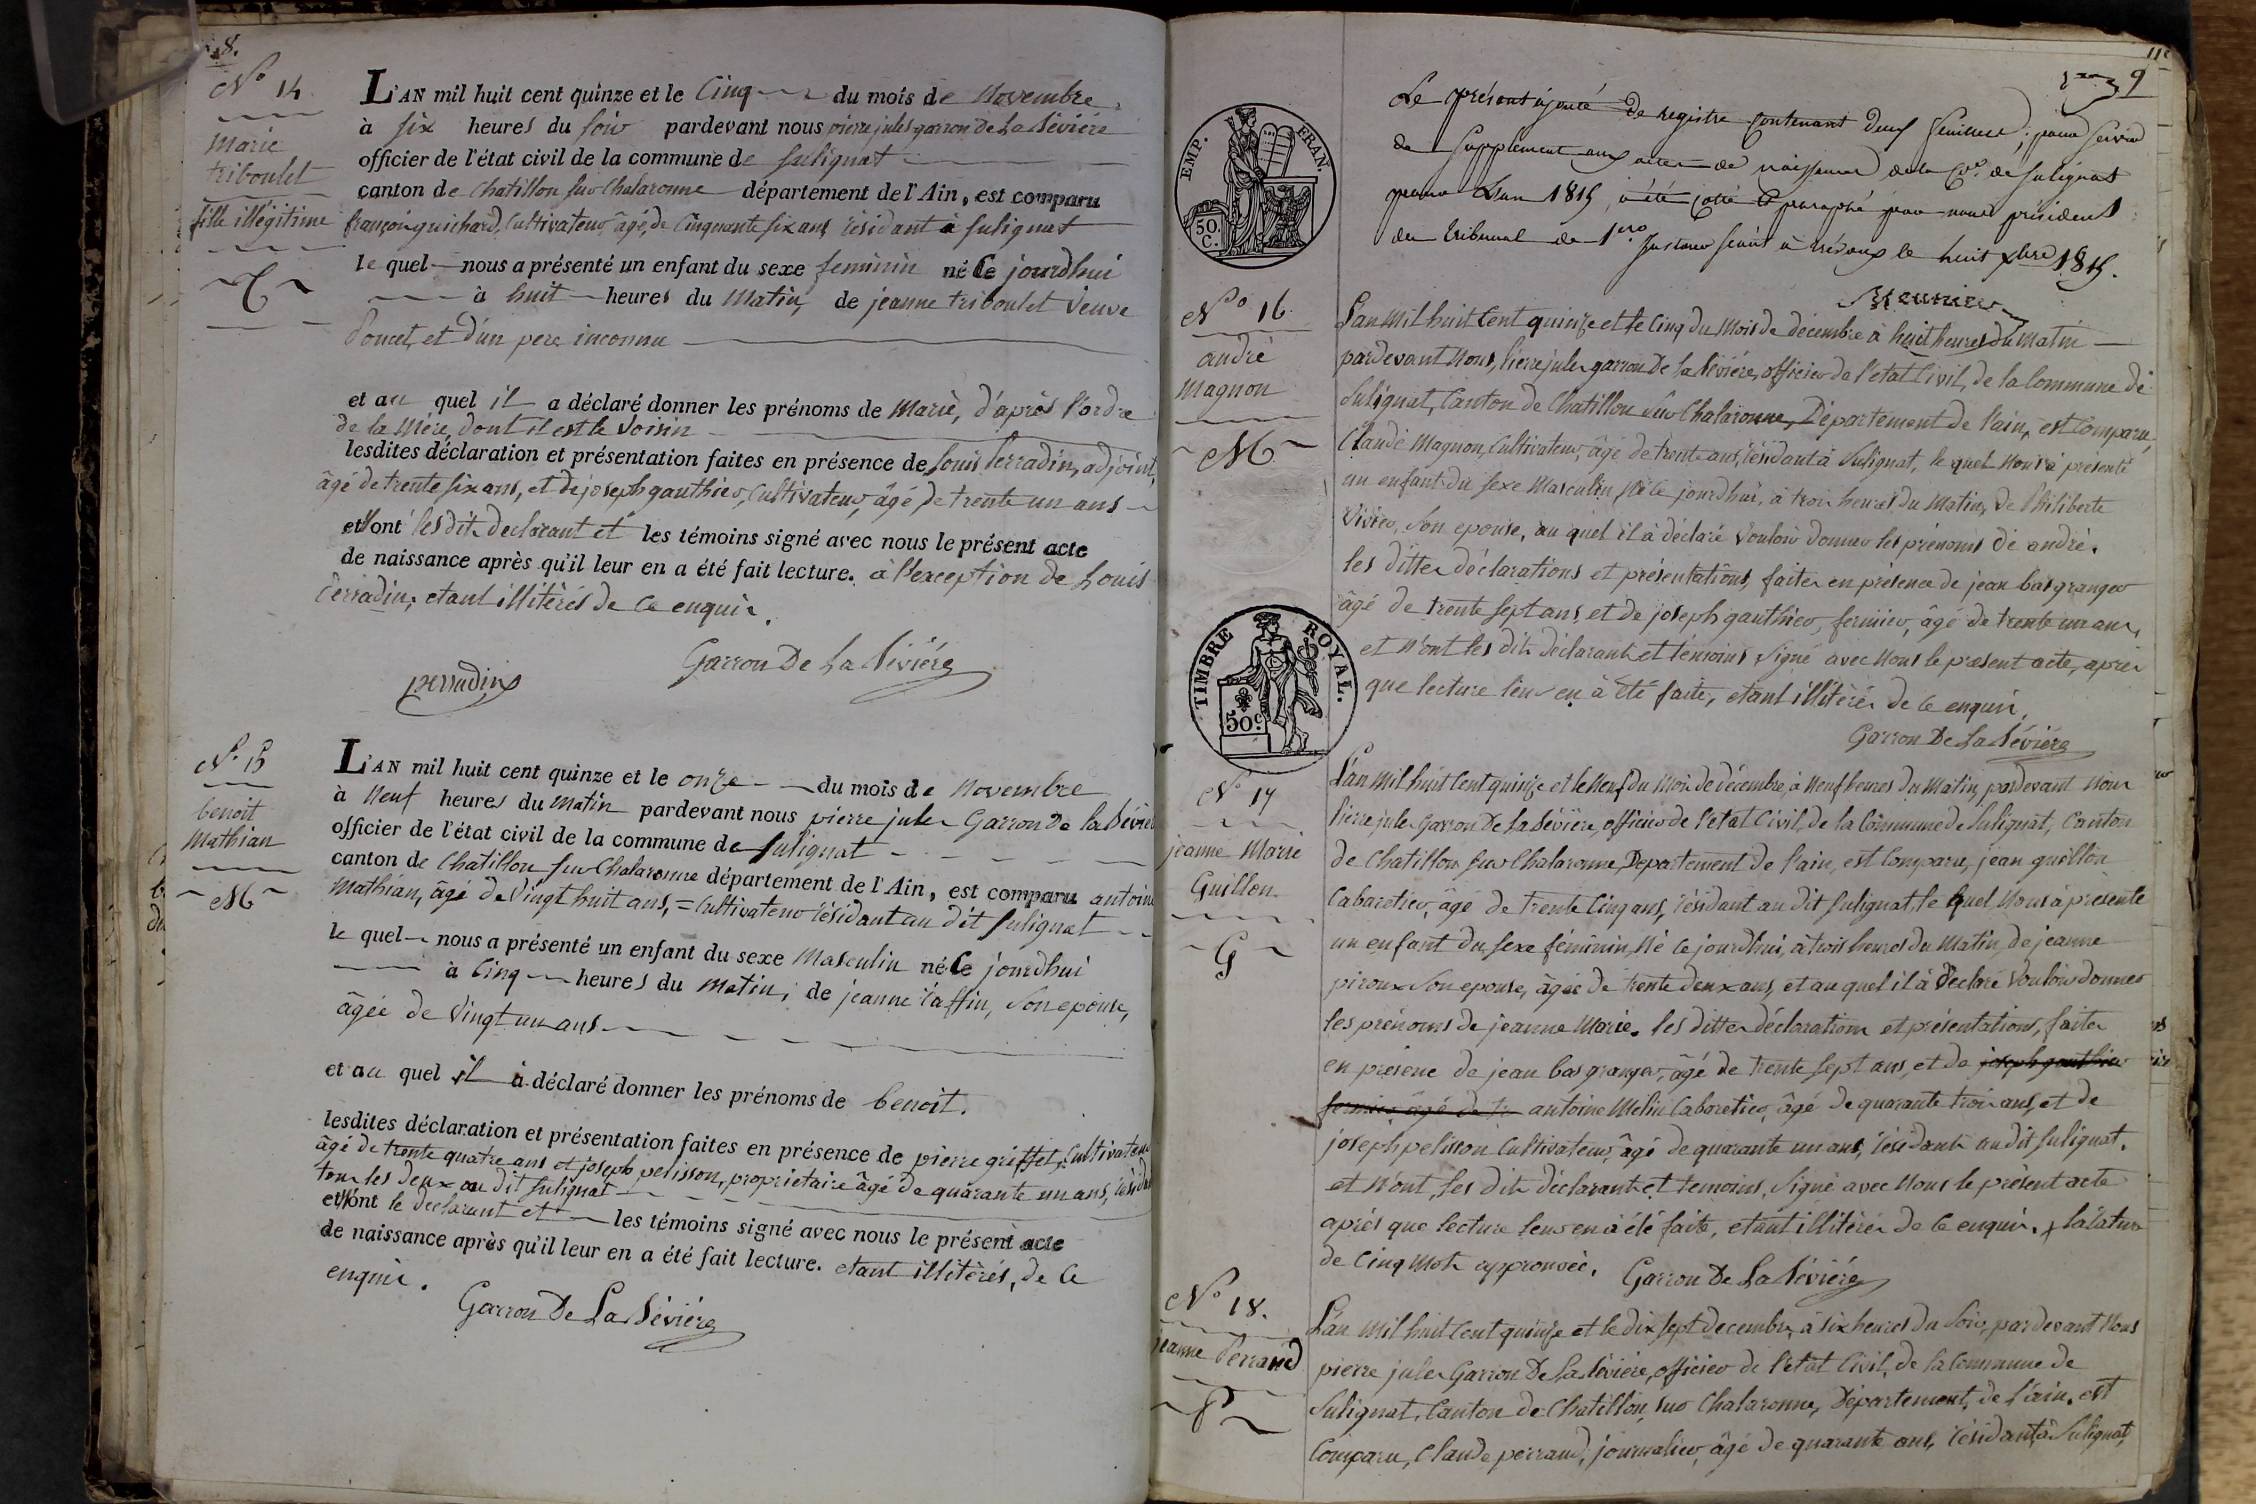 8.
N.o 14
Marie
triboulet
fille illégitime
T
L'AN mil huit cent quinze et le Cinq du mois de Novembre
à six heures du soir pardevant nous pierre jules garron de La Sévière
officier de l'état civil de la commune de Sulignat
canton de Chatillon sur Chalaronne département de l'Ain, est comparu
françois guichard, Cultivateur, âgé, de Cinquante six ans, résidant à Sulignat
le quel nous a présenté un enfant du sexe feminin né Ce jourdhui
à huit heures du Matin, de jeanne triboulet veuve
Poncet, et d'un pere inconnu
et au quel il a déclaré donner les prénoms de Marie, d'après l'ordre
de la Mére, dont il est le voisin
lesdites déclaration et présentation faites en présence de Louis Perradin, adjoint,
âgé de trente six ans, et de joseph gauthier, Cultivateur, âgé de trente un ans
et N'ont les dits declarant et les témoins signé avec nous le présent acte
de naissance après qu'il leur en a été fait lecture. à l'exception de Louis
Perradin, etant illitérés de Ce enquir.
Garron De La Sévière
perradin
N.o 15
benoit
Mathian
M
L'AN mil huit cent quinze et le onze du mois de Novembre
à Neuf heures du Matin pardevant nous pierre jules Garron De La Sévière
officier de l'état civil de la commune de Sulignat
canton de Chatillon sur Chalaronne département de l'Ain, est comparu antoine
Mathian, âgé de Vingt huit ans, = Cultivateur résidant au dit Sulignat
le quel nous a présenté un enfant du sexe Masculin né Ce jourdhui
à Cinq heures du Matin, de jeanne taffin, Son epouse,
âgée de Vingt un ans
et au quel il à déclaré donner les prénoms de benoit.
lesdites déclaration et présentation faites en présence de pierre griffet, Cultivateur
âgé de trente quatre ans et joseph pelisson, propriétaire âgé de quarante un ans, résidant
tous les deux au dit Sulignat
et N'ont le declarant et les témoins signé avec nous le présent acte
de naissance après qu'il leur en a été fait lecture. etant illitérés, de Ce
enquir.
Garron De La Sévière
9
Le présent ajouté de registre contenant deux feuilles, pour servir
de Supplement aux actes de naissance de la Cne. de Sulignat
pour L'an 1815, a été cotté & paraphé par nous président
du tribunal de 1ere instance séant à trévoux le huit Xbre 1815.
Meunier
EMP. FRAN.
50 C.
N.o 16
andré
Magnon
M
L'an Mil huit Cent quinze et le Cinq du Mois de décembre à huit heures du Matin
pardevant Nous, Pierre jules garron De la Sévière, officier de l'etat Civil, de la Commune de
Sulignat, Canton de Chatillon Sur Chalaronne, Département de l'ain, est Comparu,
Claude Magnon, Cultivateur, âgé de trente ans, résidant à Sulignat, le quel Nous à présenté
un enfant du Sexe Masculin Né le jourdhui, à trois heures du Matin, de Philiberte
Vivier, Son epouse, au quel il à déclaré Vouloir donner les prénoms de andré.
les dittes déclarations et présentations, faites en présence de jean bas granger
âgé de trente sept ans, et de joseph gauthier, fermier, âgé de trente un ans,
et N'ont les dits déclarant et témoins Signé avec Nous le présent acte, après
que lecture leur en à été faite, etant illitérés de Ce enquir.
Garron De La Sévière
TIMBRE ROYAL.
50 c.
N.o 17
jeanne Marie
Guillon
G
L'an Mil huit Cent quinze et le Neuf du Mois de décembre, à Neuf heures du Matin, pardevant Nous
Pierre jules Garron De La Sévière, officier de l'etat Civil, de la Commune de Sulignat, Canton
de Chatillon Sur Chalaronne, Département de l'ain, est Comparu, jean guillon
Cabaretier, âgé de trente Cinq ans, résidant au Dit Sulignat, le quel Nous à présenté
un enfant du Sexe féminin, Né ce jourdhui, à trois heures du Matin, de jeanne
piroux Son epouse, âgée de trente deux ans, et au quel il à Déclaré Vouloir donner
les prénoms de jeanne Marie. les dittes déclarations et présentations, faites
en présence de jean bas granger, âgé de trente sept ans, et de joseph gauthier
fermier, âgé de tr antoine Melin Cabaretier, âgé de quarante trois ans, et de
joseph pelisson Cultivateur, âgé de quarante un ans, résidants au dit Sulignat.
et N'ont, les dits déclarant et temoins, Signé avec Nous le présent acte
après que lecture leur en à été faite, etant illitérés de Ce enquir. + la rature
de Cinq Mots approuvée. Garron De La Sévière
N.o 18.
jeanne Perraud
P
L'an Mil huit Cent quinze et le dix Sept decembre, à six heures du Soir, pardevant Nous
pierre jules Garron De La Sévière, officier de l'etat Civil, de la Commune de
Sulignat, Canton de Chatillon, Sur Chalaronne, Département, de l'ain, est
Comparu, Claude perraud, journalier, âgé de quarante ans, résidant à Sulignat,